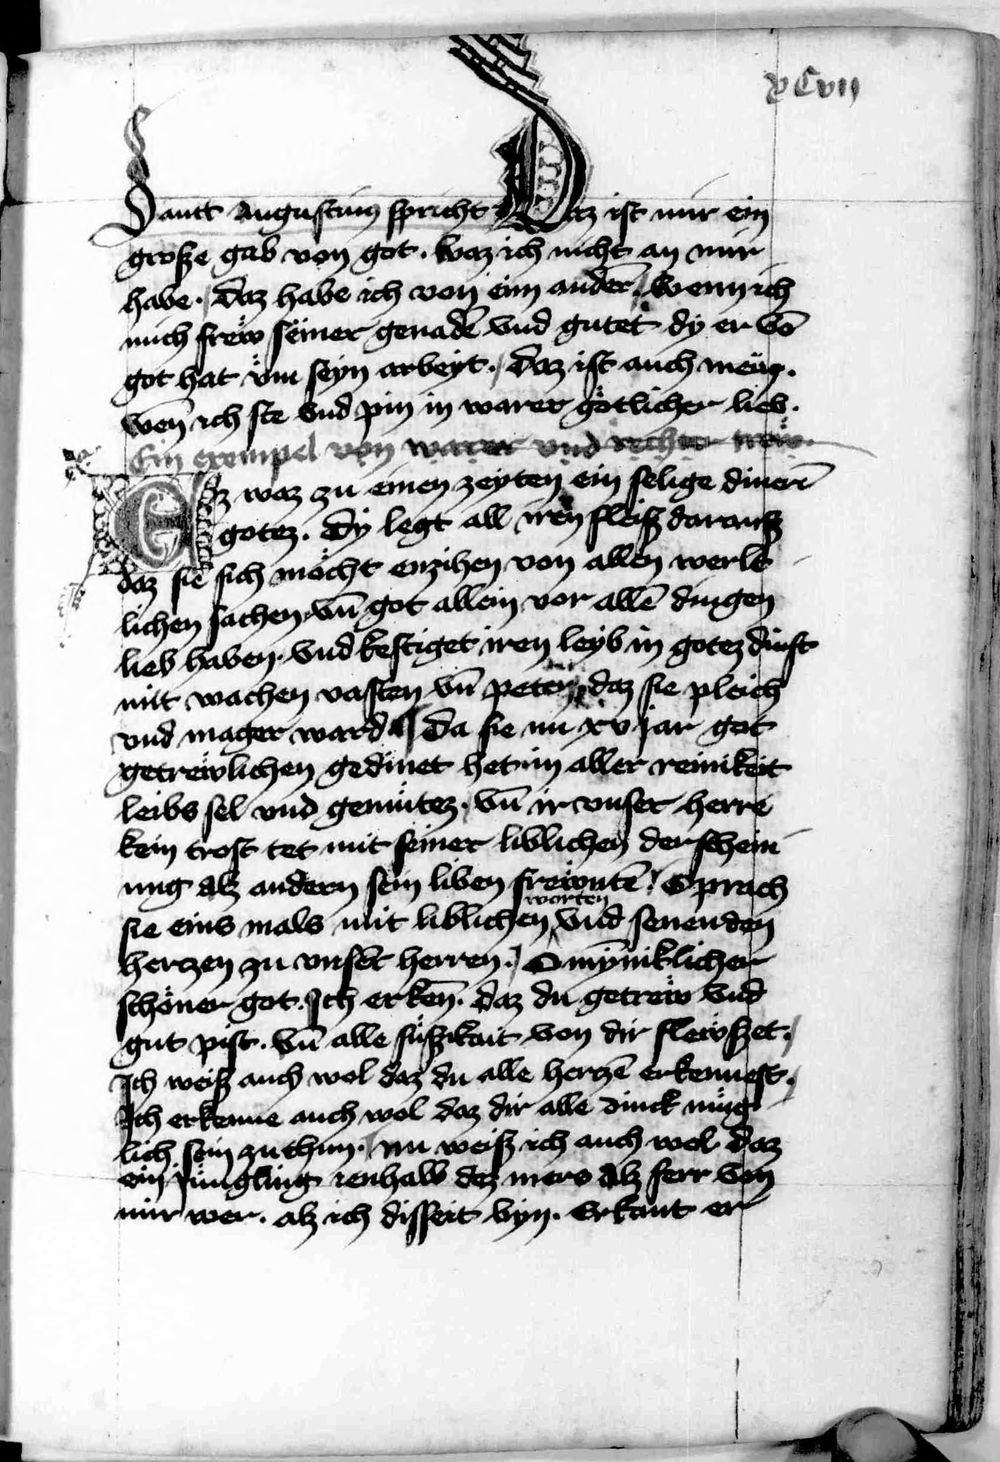 xCvii
Santt Augustinus spricht Daz ist mir ein
große gab von got. waz ich nicht an mir
habe. Daz habe ich von eim andeῖ. Wenn ich
mich frew seiner genadē vnd gutet dy er vō
got hat vm̈ seyn arbeyt. Daz ist auch meῡ.
wen̄ ich ste vnd pin in warer götlicher lieb.
Ein exempel von warer vnd rechter trew.
Ez waz zu einen zeyten ein selige dinerī
gotez. Dy legt all iren fleiß darauß
daz sie sich möcht enzihen von allen werlt
lichen sachen. vn̄ got allein vor allē dingen
lieb haben. vnd kestiget iren leyb in gotez dinst
mit wachen vasten vn̄ peten, daz sie pleich
vnd mager ward. Da sie nu xv jar got
getrewlichen gedinet het in aller reinikeit
leibs sel vnd gemütez. vn̄ ir vnser herre
kein trost tet mit seiner liblichen derschein
ung alz andern sein liben frewntē. Sprach
sie eins mals mit liblichen worten vnd senenden
herczen zu vnserm herren. O myn̄iklicher
schöner got. Ich erken̄. daz du getrew vnd
gut pist. vn̄ alle süßikait von dir flewsset.
Ich weiß auch wol daz du alle herczē erkennest.
Ich erkenne auch wol daz dir alle dinck müg
lich sein zu thun. nu weiß ich auch wol daz
ein jüngling ienhalb dez mers alz ferr von
mir wer. alz ich disseit byn. Erkant er